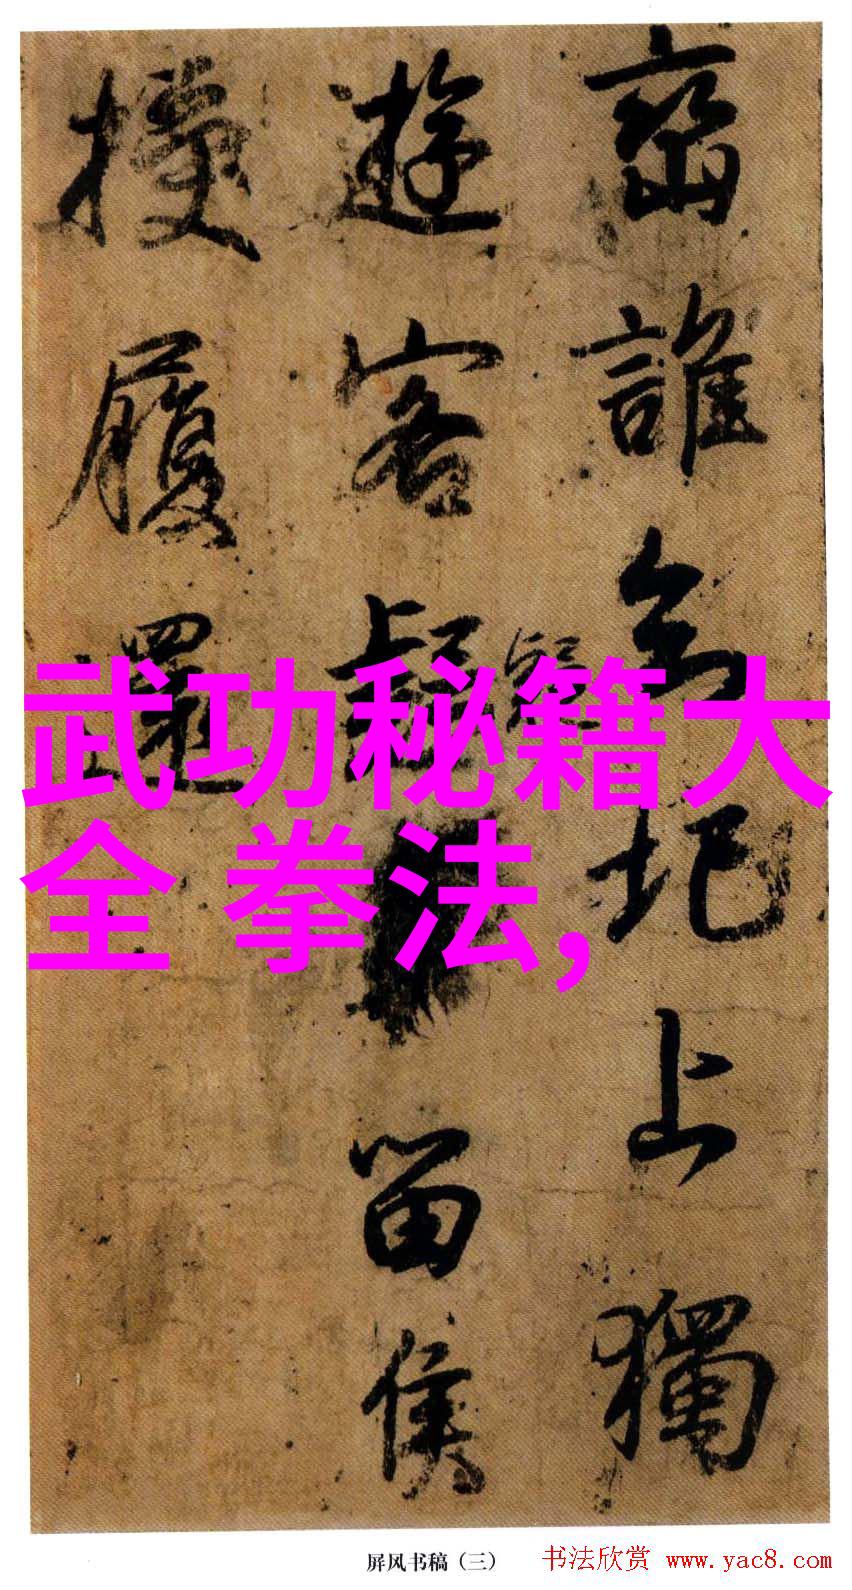 誰 圯上獨
遊客 留侯
履還
武功秘籍大
全 拳法,
屏风书稿（三）
书法欣赏 www.yac8.com